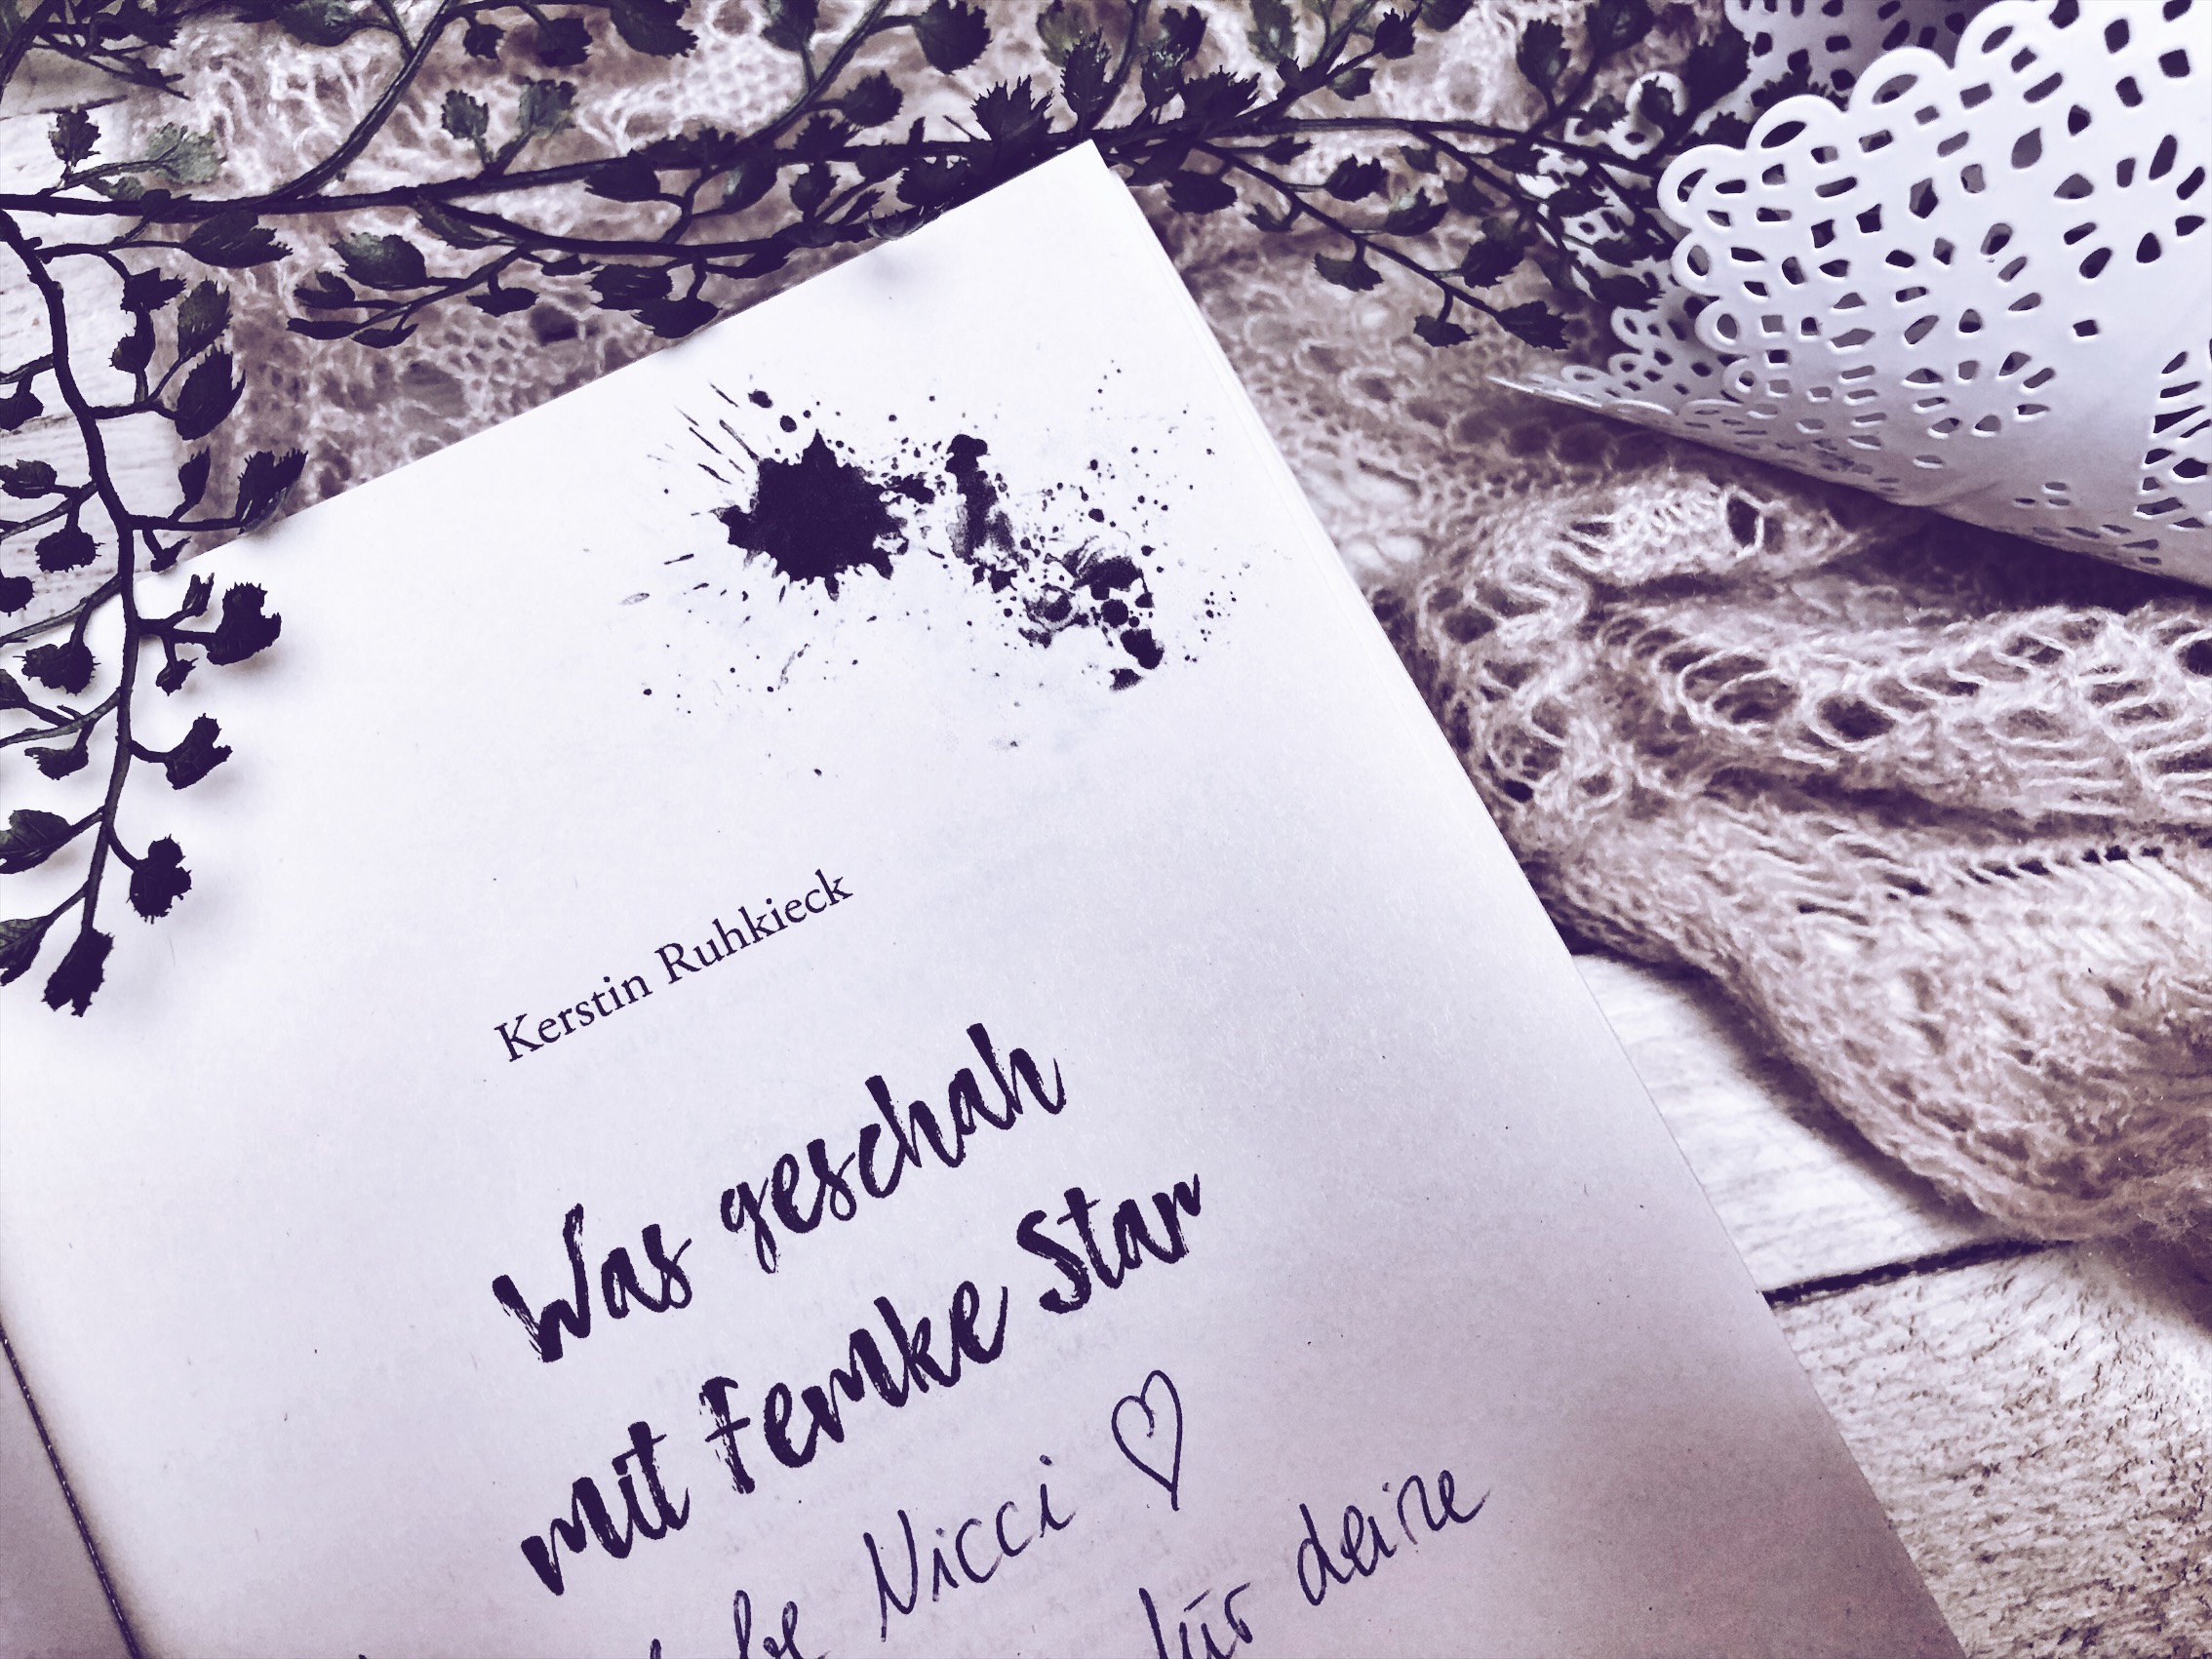 Kerstin Ruhkieck
Was geschah
mit Femke Star
Nicci ♡
für deine